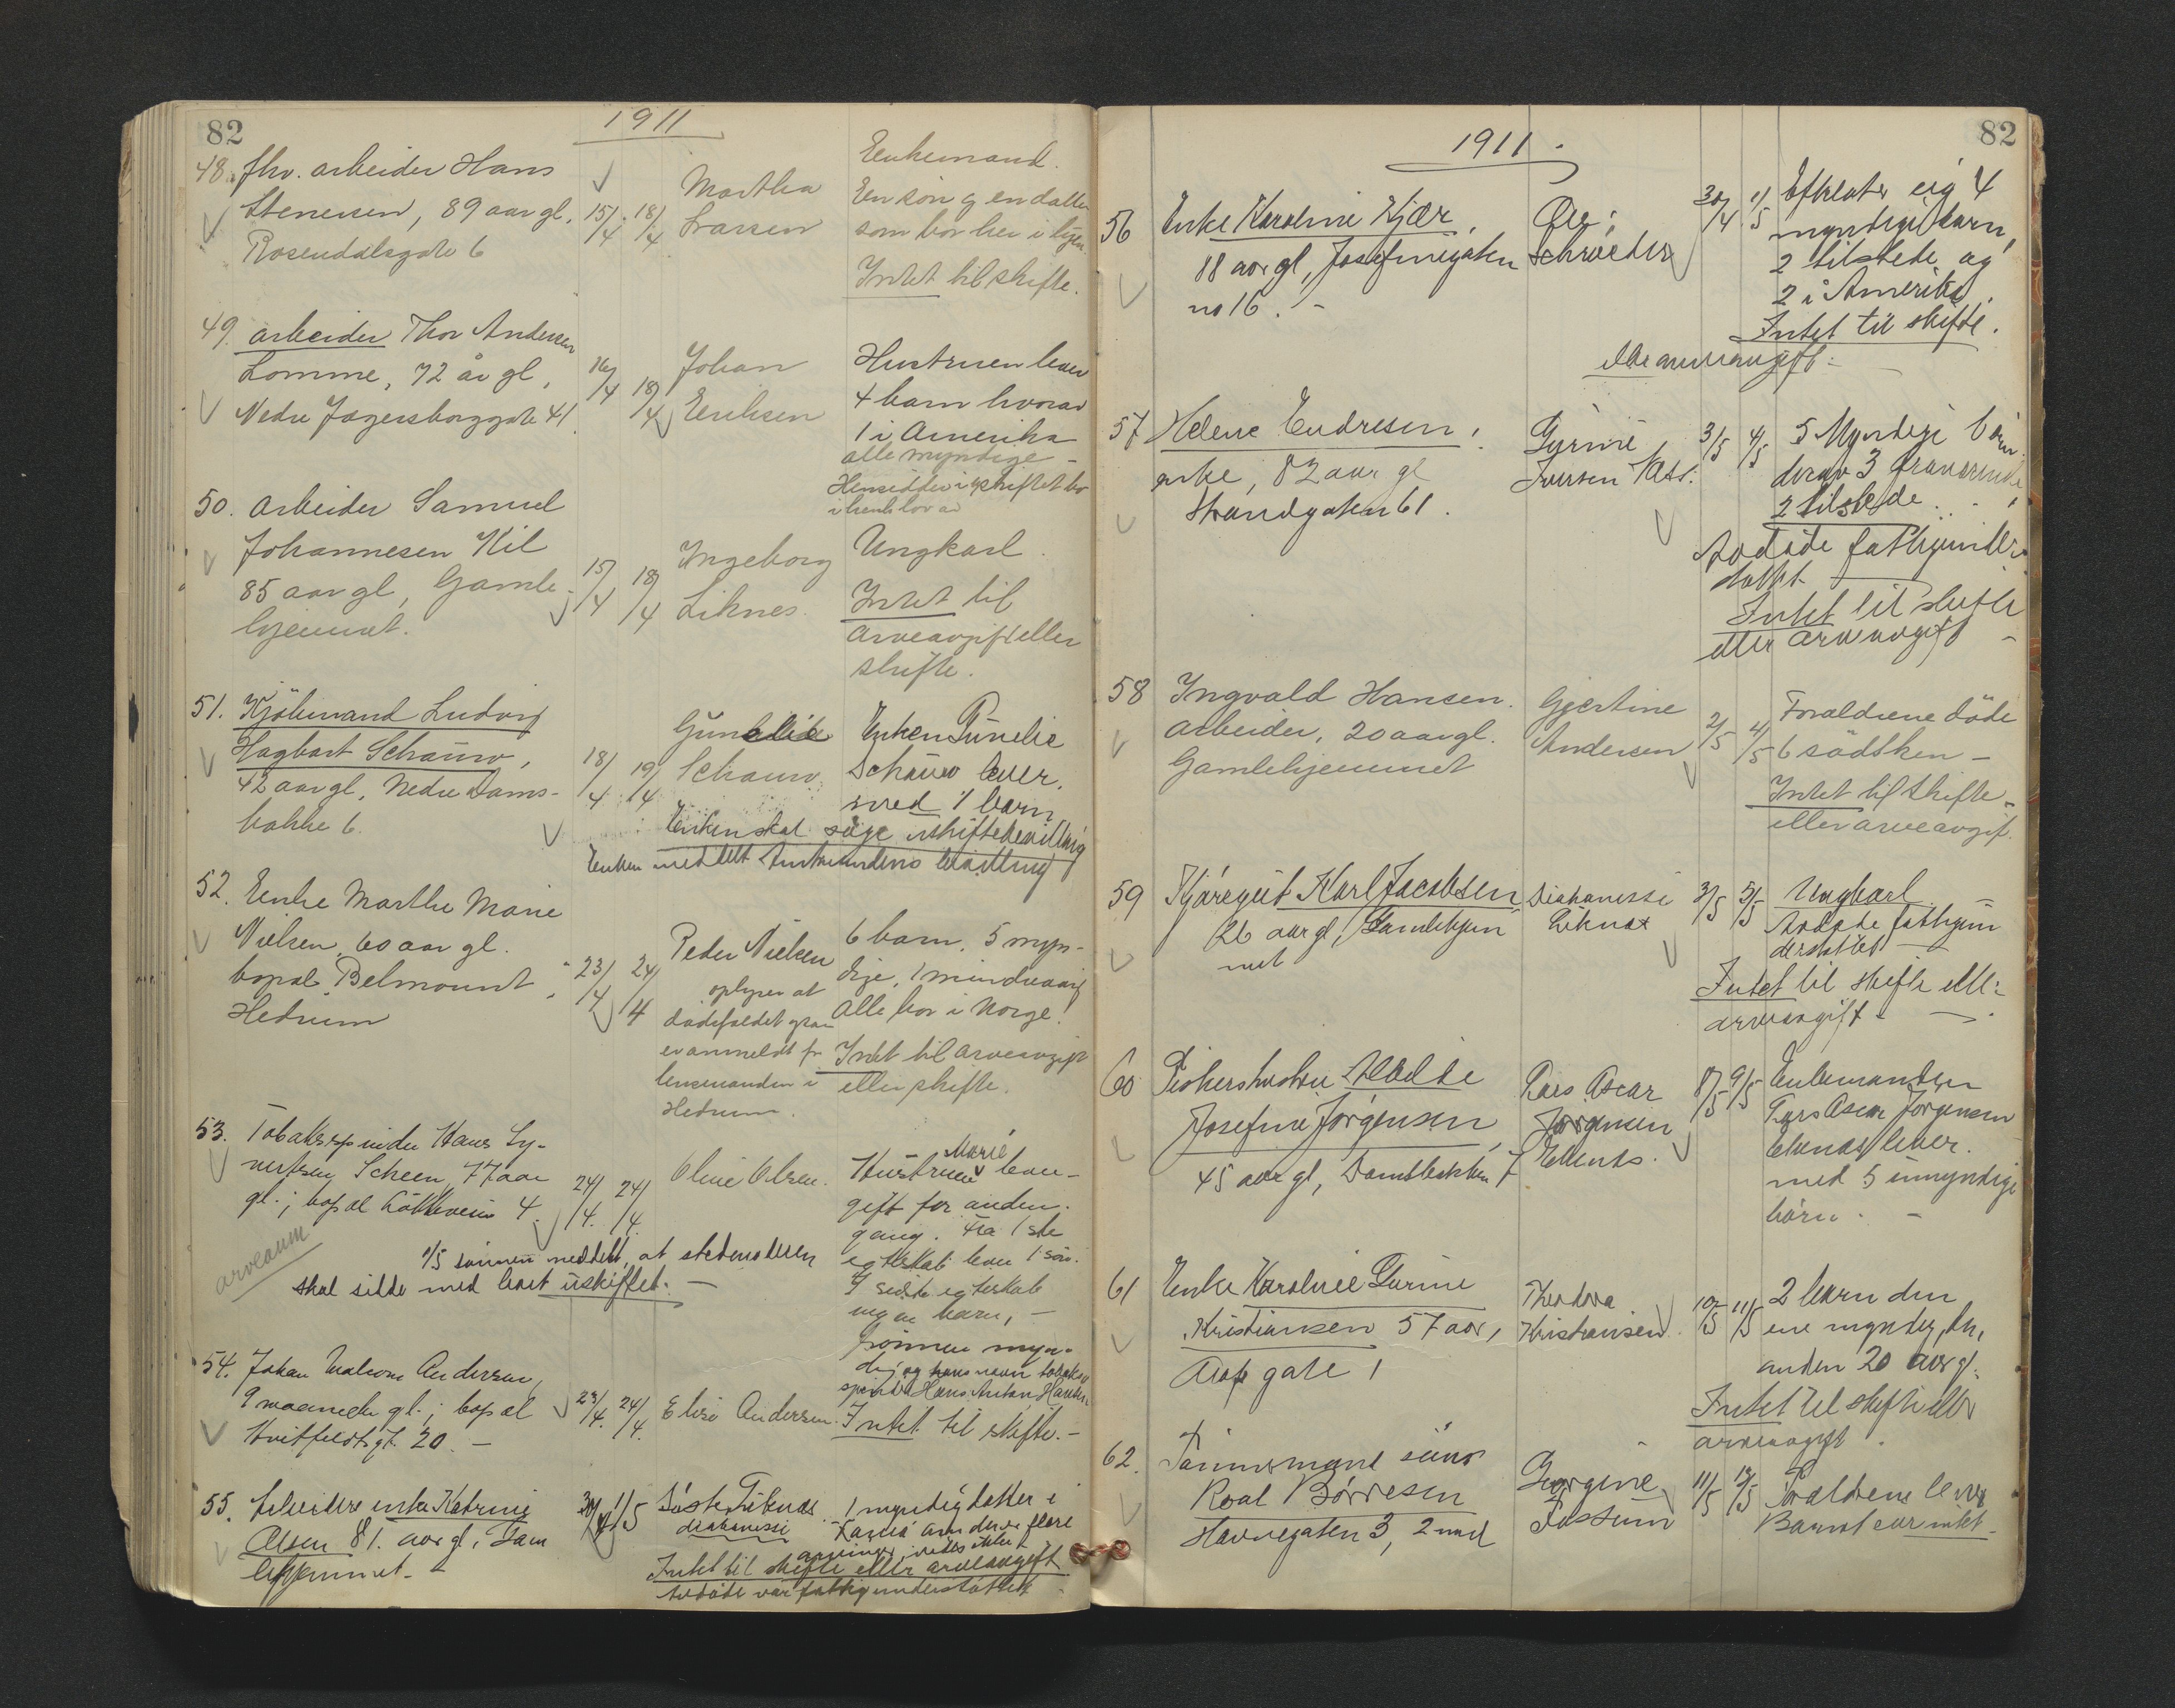 82
1911
48. fhv. arbeider Hans
Stenersen, 89 aar gl.
Rosendalsgate 6
15/4 18/4
Martha
Larsen
Enkemand.
En søn og en datter
som bor her i byen
Intet til skifte.
49. arbeider Thor Andersen
Lomme, 72 år gl,
Nedre Jægersborggate 41
16/4 18/4
Johan
Eriksen
Hustruen lever
4 barn hvorav
1 i Amerika
alle myndige -
Hensidder i uskiftet bo
50. Arbeider Samuel
Johannesen Kil
85 aar gl, Gamle-
hjemmet.
15/4 18/4
Ingeborg
Liknes.
Ungkarl.
Intet til
arveavgift eller
skifte.
51. Kjöbmand Ludvig
Hagbart Schauw,
42 aar gl, Nedre Dams-
bakke 6.
18/4 19/4
Schauw
Enken
Schauw lever.
med 1 barn
Enken skal søge uskiftebevilling
Enken meddelt Amtmandens bevilling
52. Enke Marthe Marie
Nielsen, 60 aar gl.
bopæl Belmount,
Hedrum
23/4 24/4
Peder Nielsen
oplyser at
dødsfaldet
er anmeldt fr
lensmanden i
Hedrum.
6 barn, 5 myn-
dige, 1 mindreaarig
Alle bor i Norge.
Intet til arveavgift
eller skifte.
53. Tobakspinder Hans Sy-
vertsen Scheen, 77 aar
gl.; bopæl 4.
24/4. 24/4.
Oline Olsen.
Marie
Hustruen lever -
gift for anden
gang. Fra 1ste
egteskab lever 1 søn.
I sidste egteskab
ingen barn, -
sønnen myn-
dig og hans navn tobaks
spinder Hans Anton Hansen
1/5 sønnen meddelt, at stedmoderen
skal sidde med boet uskiftet. -
54. Johan Andersen,
9 maaneder gl.; bopæl
Hvitfeldtsgt. 20. -
23/4. 24/4.
Elise Andersen.
Intet til skifte. -
55. Arbeiders enke Katrine
Olsen 81. aar gl, Gam
lehjemmet -
30/4 1/5
Søster Liknes
diakonisse
1 myndig datter i
er flere
arvinger, vides ikke
Intet til skifte eller arveavgift
Avdøde var fattigunderstøttet
82
1911.
56
Enke Karoline Kjær,
88 aar gl, Josefinegaten
no 16. -
Schrøder
30/4. 1/5
Efterlater sig 4
myndige barn,
2 tilstede og
2 i Amerika.
Intet til skifte.
eller arveavgift -
57
Helene Endresen,
enke, 82 aar gl
Strandgaten 61.
Gurine
Iversen
3/5 4/5
5 Myndige börn
derav 3 fraværende
2 tilstede. -
Avdøde fattigunder-
støttet
Intet til skifte
eller arveavgift -
58
Ingvald Hansen.
Arbeider, 20 aar gl.
Gamlehjemmet
Gjertine
Andersen
2/5 4/5
Foraldrene döde
6 södsken -
Intet til skifte -
eller arveavgif.
59
Karl Jacobsen
26 aar gl, Gamlehjem
met
Diakonisse
Liknes
3/5 5/5
Ungkarl
Avdøde fattigun
derstøttet
Intet til skifte elle:
arveavgift - -
60
Fiskershustru
Josefine Jörgensen,
45 aar gl, Damsbakken 7
Lars Oscar
Jørgensen
8/5 9/5
Enkemanden
Lars Oscar Jørgensen
lever.
med 5 umyndige
börn. -
61
Enke Karoline Gurine
Kristiansen 57 aar,
gate 1
Theodora
Kristiansen
10/5 11/5
2 barn den
ene myndig, den
anden 20 aar gl.
Intet til skifte eller
arveavgift.
62.
Tömmermand söns
Roal Børresen
Havnegaten 3, 2 mnd
Georgine
Fossum
11/5 12/5
Foraldrene lever
Barnet eier intet -